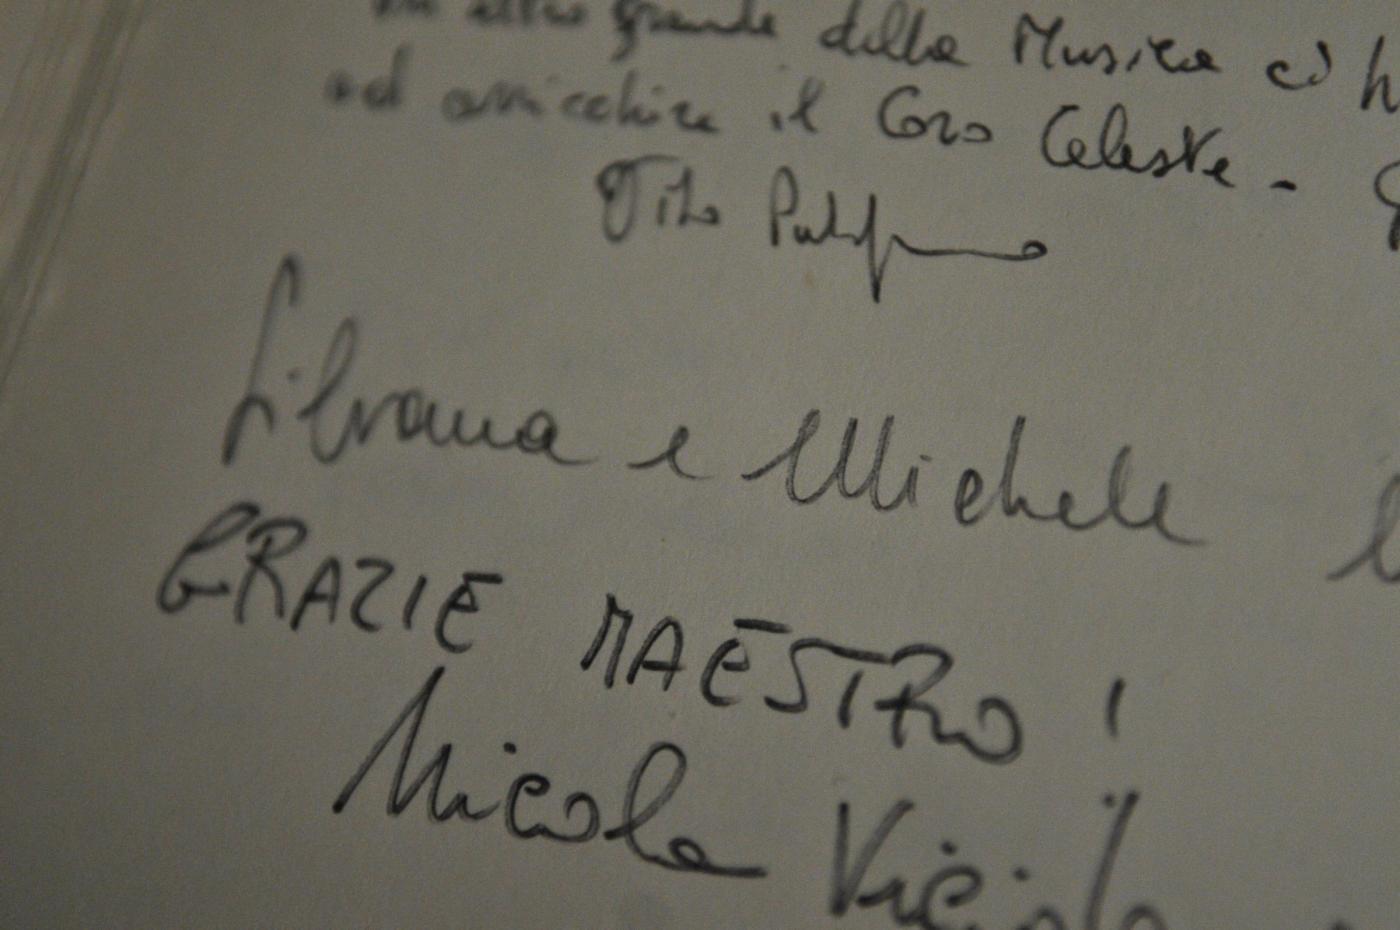 Un altro grande della Musica ci h
ad arricchire il Coro Celeste -
Vito
Silvana e Michele
GRAZIE MAESTRO!
Nicola